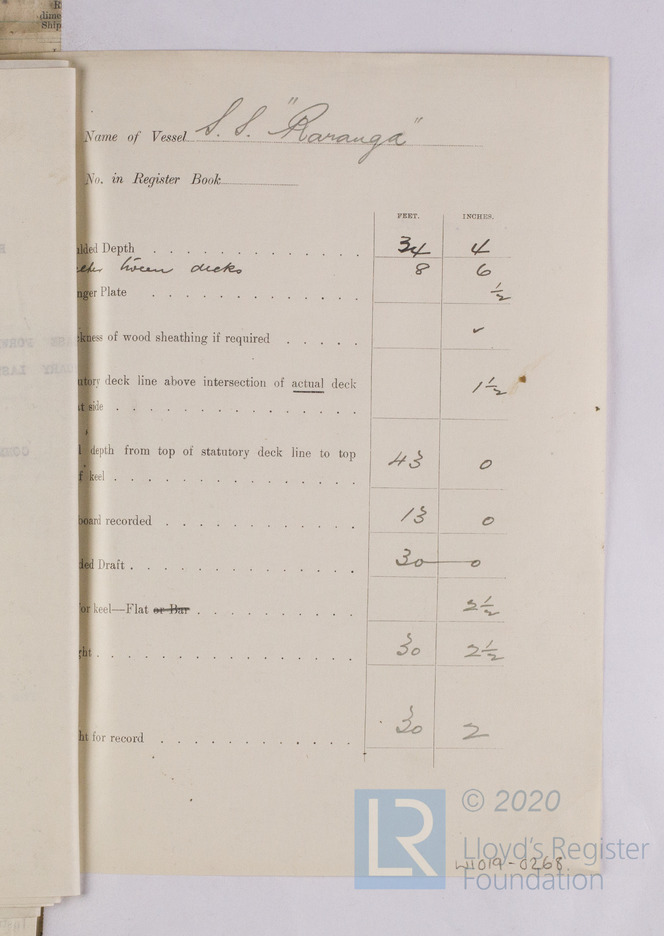 R
dime
Ship
Name of Vessel S. S. "Raranga"
No. in Register Book
FEET. INCHES.
ulded Depth 34 4
tween decks 8 6
nger Plate ½
kness of wood sheathing if required ✓
utory deck line above intersection of actual deck
t side 1½
l depth from top of statutory deck line to top
f keel 43 0
board recorded 13 0
ded Draft 30 0
or keel—Flat or Bar 2½
ght 30 2½
ht for record 30 2
LR © 2020
Lloyd's Register
Foundation
W1019-0268